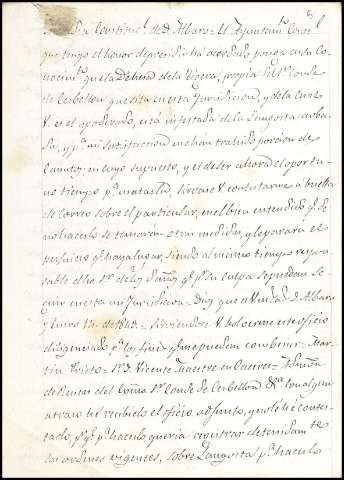 Constituc.l de D. Albaro - El Ayuntam.to Const.l
que tengo el honor de presidir ha acordado ponga en su Co-
nocim.to que la Dehesa de la propia del S.or Conde
de Cerbellon que sita en esta Jurisdicion, y de la cual
V. es el apoderado, está infestada de la Langosta
y p.a mi satisfaccion me han trahido porcion de
Canutos; en cuyo supuesto, y el de ser ahora el oportu-
no tiempo p.a matarla, sirvase V. contestarme á buelta
de Correo sobre el particular, en el bien entendido q.e de
no hacerlo se tomarán otras medidas, y le parará el
perjuicio q.e haya lugar, siendo al mismo tiempo respon-
sable dho S.or de los Daños q.e p.r su culpa se puedan se-
guir en esta mi Jurisdicion - Dios gue á V. m.s a.s D. Albaro
y Enero 14 de 1842 - Sirviendose V. bolverme este oficio
diligenciado p.a los fines q.e me puedan combenir - Mar-
tin Prieto - S.r D. Vicente Maestre en Caceres - Admin.or
de Rentas del Exmo S.or Conde de Cerbellon &.a Con algun
atraso he recibido el oficio adjunto, y no le he contes-
tado, p.r q.e p.a hacerlo queria registrar detenidam.te
las ordenes vigentes, sobre Langosta p.a hacerlo